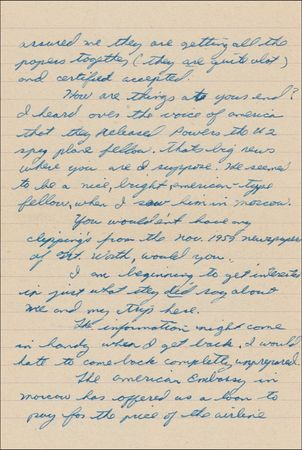 assured me they are getting all the
papers together (they are quite a lot)
and certified accepted.
How are things at your end?
I heard over the voice of america
that they Released Powers the U2
spy plane fellow. Thats big news
where you are I suppose. He seemed
to be a nice, bright american-type
fellow, when I saw him in Moscow.
You wouldn't have any
clipping's from the Nov. 1959 newspapers
of Ft. Worth, would you.
I am beginning to get interested
in just what they did say about
me and my trip here.
The information might come
in handy when I get back. I would
hate to come back completly unprepared.
The american Embassy in
moscow has offered us a loan to
pay for the price of the airline